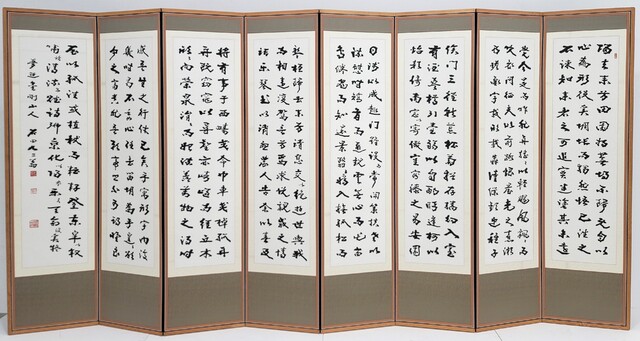 歸去來兮田園將蕪胡不歸既自以
心為形役奚惆悵而獨悲悟已往之
不諫知來者之可追實迷途其未遠
覺今是而昨非舟搖搖以輕颺風飄飄而
吹衣問征夫以前路恨晨光之熹微
乃瞻衡宇載欣載奔僮僕歡迎稚子
候門三徑就荒松菊猶存攜幼入室
有酒盈樽引壺觴以自酌眄庭柯以
怡顏倚南窗以寄傲審容膝之易安園
日涉以成趣門雖設而常關策扶老以
流憩時矯首而遐觀雲無心而出岫
鳥倦飛而知還景翳翳以將入撫孤松而
盤桓歸去來兮請息交以絕遊世與我
而相違復駕言兮焉求悅親戚之情
話樂琴書以消憂農人告余以春及
將有事于西疇或命巾車或棹孤舟
既窈窕以尋壑亦崎嶇而經丘木
欣欣以向榮泉涓涓而始流善萬物之得時
感吾生之行休已矣乎寓形宇內復
幾時曷不委心任去留胡為乎遑遑欲
何之富貴非吾願帝鄉不可期懷良
辰以孤往或植杖而耘耔登東皋以
舒嘯臨清流而賦詩聊乘化以歸盡樂夫天命復奚疑
石田